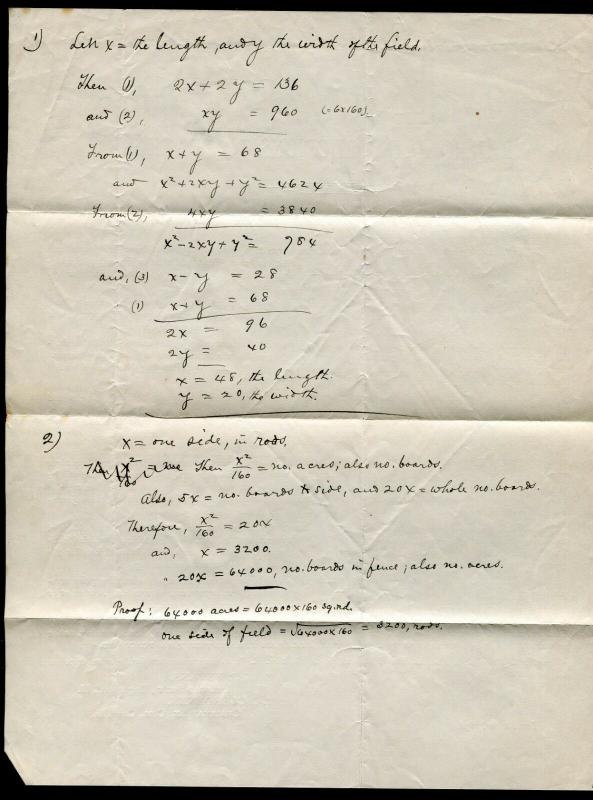 1) Let x = the length, and y the width of the field.
Then (1), 2x + 2y = 136
and (2), xy = 960 (=6x160)
From (1), x + y = 68
and x² + 2xy + y² = 4624
From (2), 4xy = 3840
x² - 2xy + y² = 784
and, (3) x - y = 28
(1) x + y = 68
2x = 96
2y = 40
x = 48, the length.
y = 20, the width.
2) x = one side, in rods.
Then x²/160 = no. acres; also no. boards.
Also, 5x = no. boards to side, and 20x = whole no. boards.
Therefore, x²/160 = 20x
and, x = 3200.
" 20x = 64000, no. boards in fence; also no. acres.
Proof: 64000 acres = 64000 x 160 sq. rd.
one side of field = √64000x160 = 3200, rods.